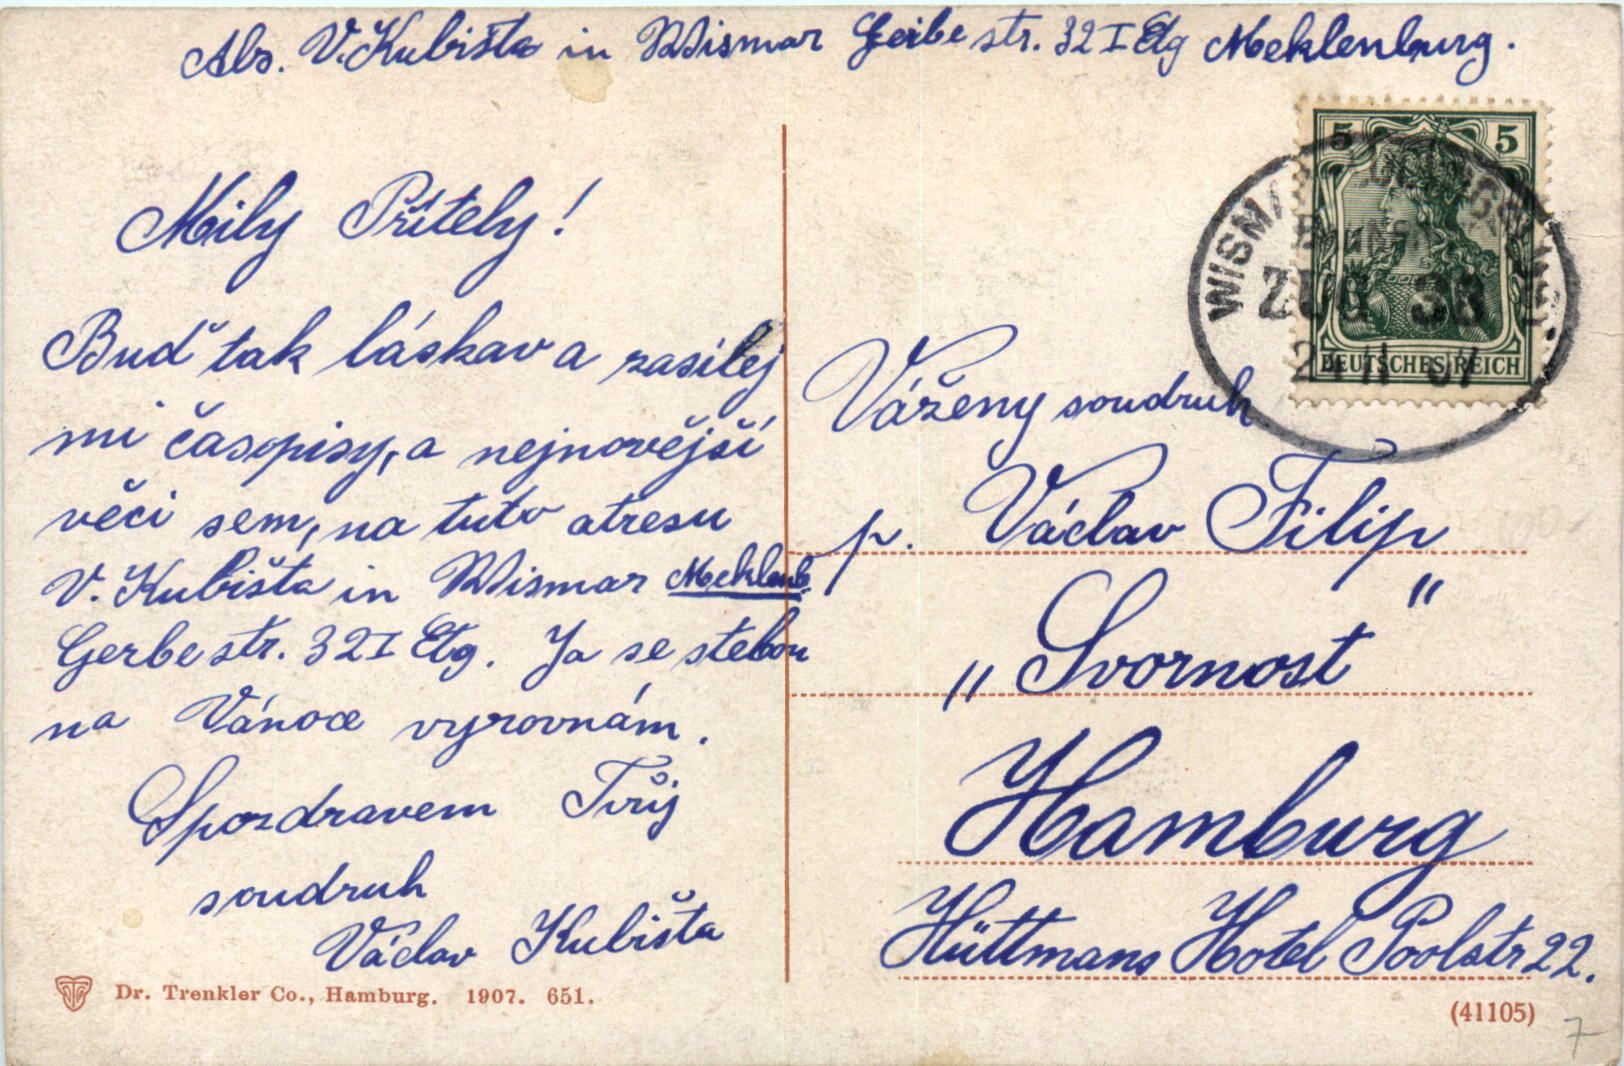 Abs. V. Kubišta in Wismar Gerbe str. 32 I Etg Meklenburg.
Mily Přítely!
Buď tak láskav a zasilej
mi časopisy, a nejnovější
věci sem, na tuto atresu
V. Kubišta in Wismar Meklenb.
Gerbe str. 32 I Etg. Ja se stebou
na Vánoce vyrovnám.
Spozdravem Tvůj
soudruh
Václav Kubišta
Dr. Trenkler Co., Hamburg. 1907. 651.
5 5
DEUTSCHES REICH
WISMAR
ZUG 38
Váženy soudruh
p. Václav Filip
„Svornost"
Hamburg
Hüttmans Hotel Poolstr 22.
(41105)
7